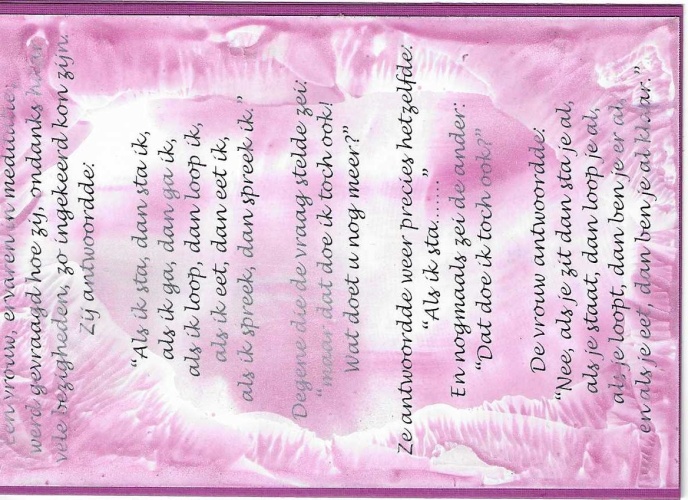 Een vrouw, ervaren in meditatie,
werd gevraagd hoe zij, ondanks haar
vele bezigheden, zo ingekeerd kon zijn.
Zij antwoordde:
“Als ik sta, dan sta ik,
als ik ga, dan ga ik,
als ik loop, dan loop ik,
als ik eet, dan eet ik,
als ik spreek, dan spreek ik.”
Degene die de vraag stelde zei:
“maar dat doe ik toch ook!
Wat doet u nog meer?”
Ze antwoordde weer precies hetzelfde:
“Als ik sta......”
En nogmaals zei de ander:
“Dat doe ik toch ook?”
De vrouw antwoordde:
“Nee, als je zit dan sta je al,
als je staat, dan loop je al,
als je loopt, dan ben je er al,
en als je eet, dan ben je al klaar.”